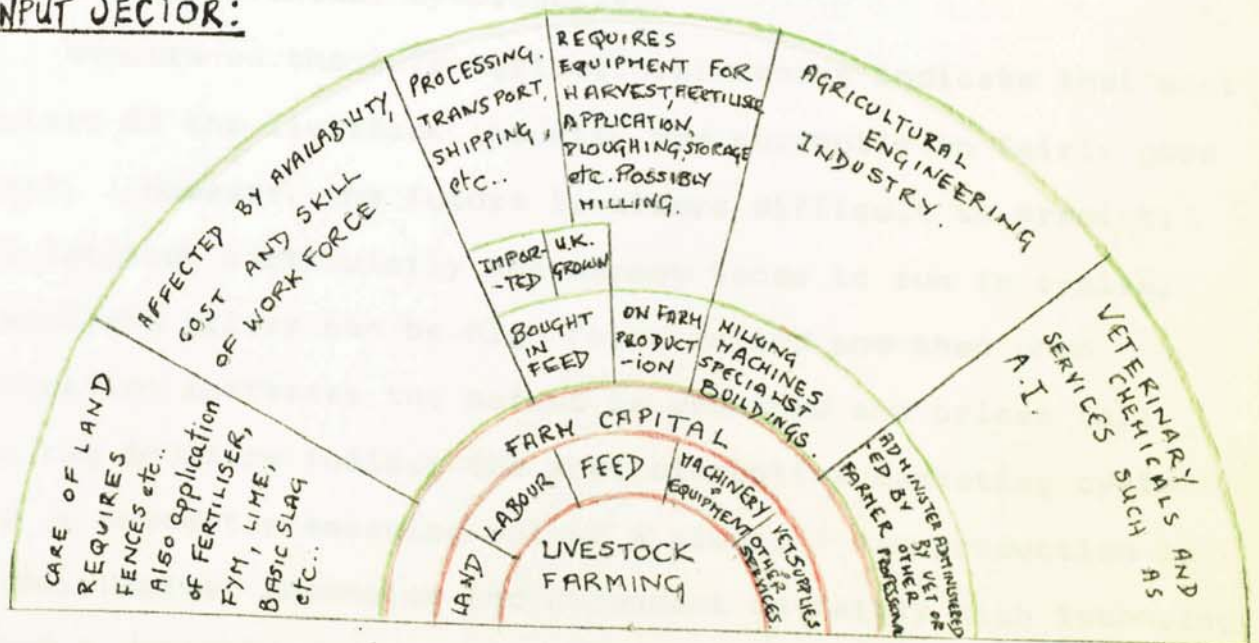 INPUT SECTOR:
CARE OF LAND
REQUIRES
FENCES etc..
Also application
of FERTILISER,
FYM, LIME,
BASIC SLAG
etc..
AFFECTED BY AVAILABILITY,
COST AND SKILL
OF WORK FORCE
PROCESSING
TRANSPORT,
SHIPPING,
etc..
REQUIRES
EQUIPMENT FOR
HARVEST, FERTILISER
APPLICATION,
PLOUGHING, STORAGE
etc. POSSIBLY
MILLING.
AGRICULTURAL
ENGINEERING
INDUSTRY.
VETERINARY AND
CHEMICALS AS
SERVICES SUCH
A.I
IMPOR-
-TED
U.K.
GROWN
BOUGHT
IN
FEED
ON FARM
PRODUCT
-ION
MILKING
MACHINES
SPECIALIST
BUILDINGS.
ADMINISTER
-ED BY
FARMER
ADMINISTERED
BY VET OR
OTHER
PROFESSIONAL
FARM CAPITAL
LAND
LABOUR
FEED
MACHINERY
+
EQUIPMENT
VET. SUPPLIES
OTHER
SERVICES.
LIVESTOCK
FARMING